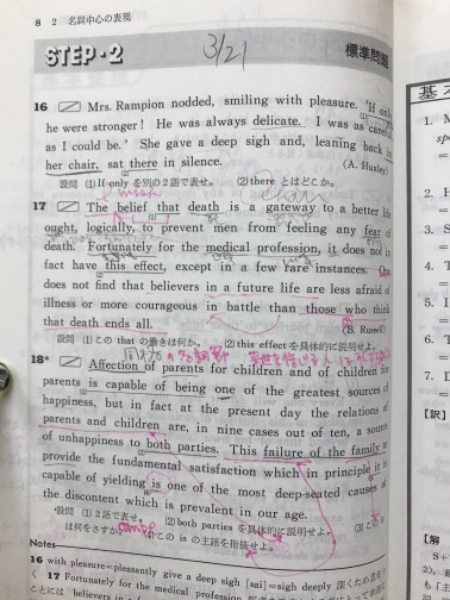 8 2 名詞中心の表現
STEP・2 3/21 標準問題
16 Mrs. Rampion nodded, smiling with pleasure. 'If only
he were stronger! He was always delicate. I was as careful
as I could be.' She gave a deep sigh and, leaning back in
her chair, sat there in silence. (A. Huxley)
設問 (1) If only を別の2語で表せ。 (2) there とはどこか。
I wish chair
17 The belief that death is a gateway to a better life
ought, logically, to prevent men from feeling any fear of
death. Fortunately for the medical profession, it does not in
fact have this effect, except in a few rare instances. One
does not find that believers in a future life are less afraid of
illness or more courageous in battle than those who think
that death ends all. (B. Russell)
設問 (1) この that の働きは何か。 (2) this effect を具体的に説明せよ。
18* Affection of parents for children and of children for
parents is capable of being one of the greatest sources of
happiness, but in fact at the present day the relations of
parents and children are, in nine cases out of ten, a source
of unhappiness to both parties. This failure of the family to
provide the fundamental satisfaction which in principle it is
capable of yielding is one of the most deep-seated causes of
the discontent which is prevalent in our age.
設問 (1) 2語で表せ。 (2) both parties を具体的に説明せよ。 (3) この
は何をさすか。 (4) この is の主語を指摘せよ。
Notes
16 with pleasure=pleasantly give a deep sigh [sai]=sigh deeply
17 Fortunately for the medical profession
ことには believers in a